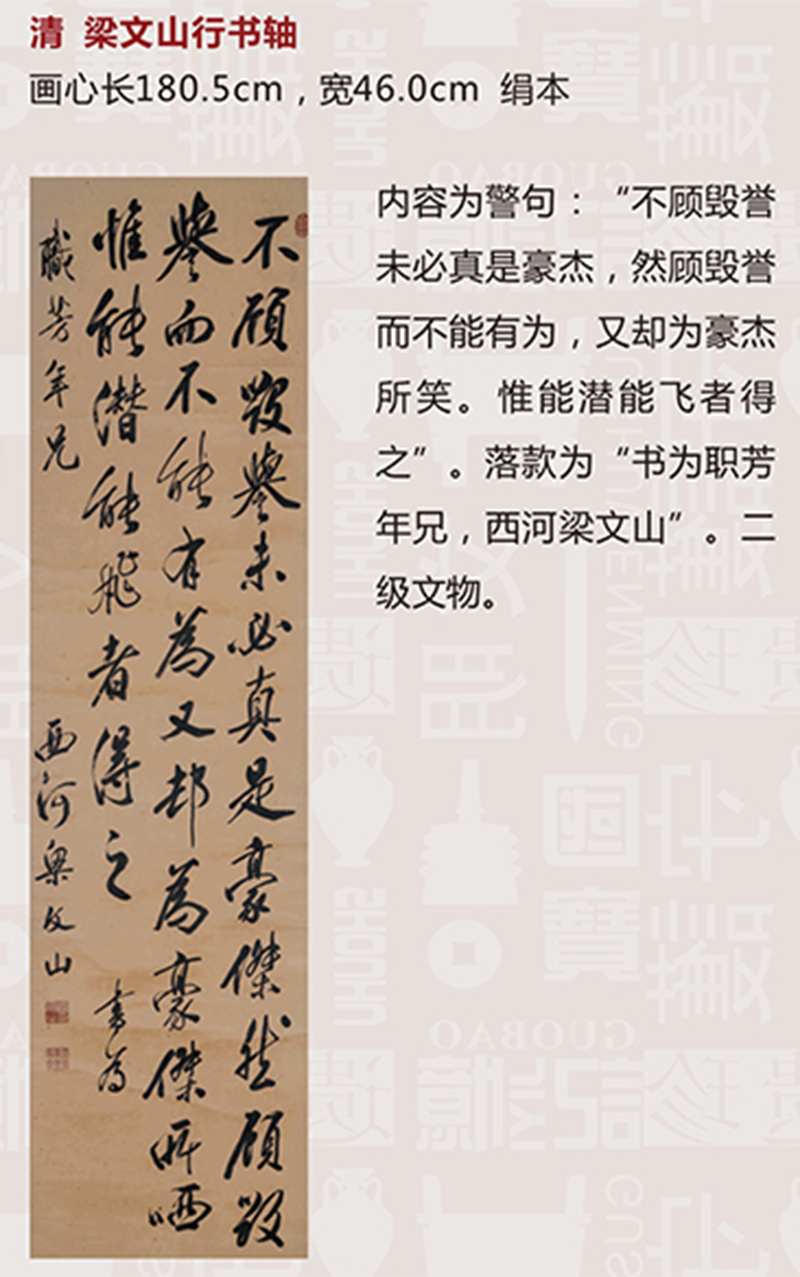 清 梁文山行书轴
画心长180.5cm，宽46.0cm 绢本
不顾毁誉未必真是豪傑然顾毁
誉而不能有為又却為豪傑所哂
惟能潜能飛者得之 書為
職芳年兄 西河梁文山
内容为警句：“不顾毁誉
未必真是豪杰，然顾毁誉
而不能有为，又却为豪杰
所笑。惟能潜能飞者得
之”。落款为“书为职芳
年兄，西河梁文山”。二
级文物。